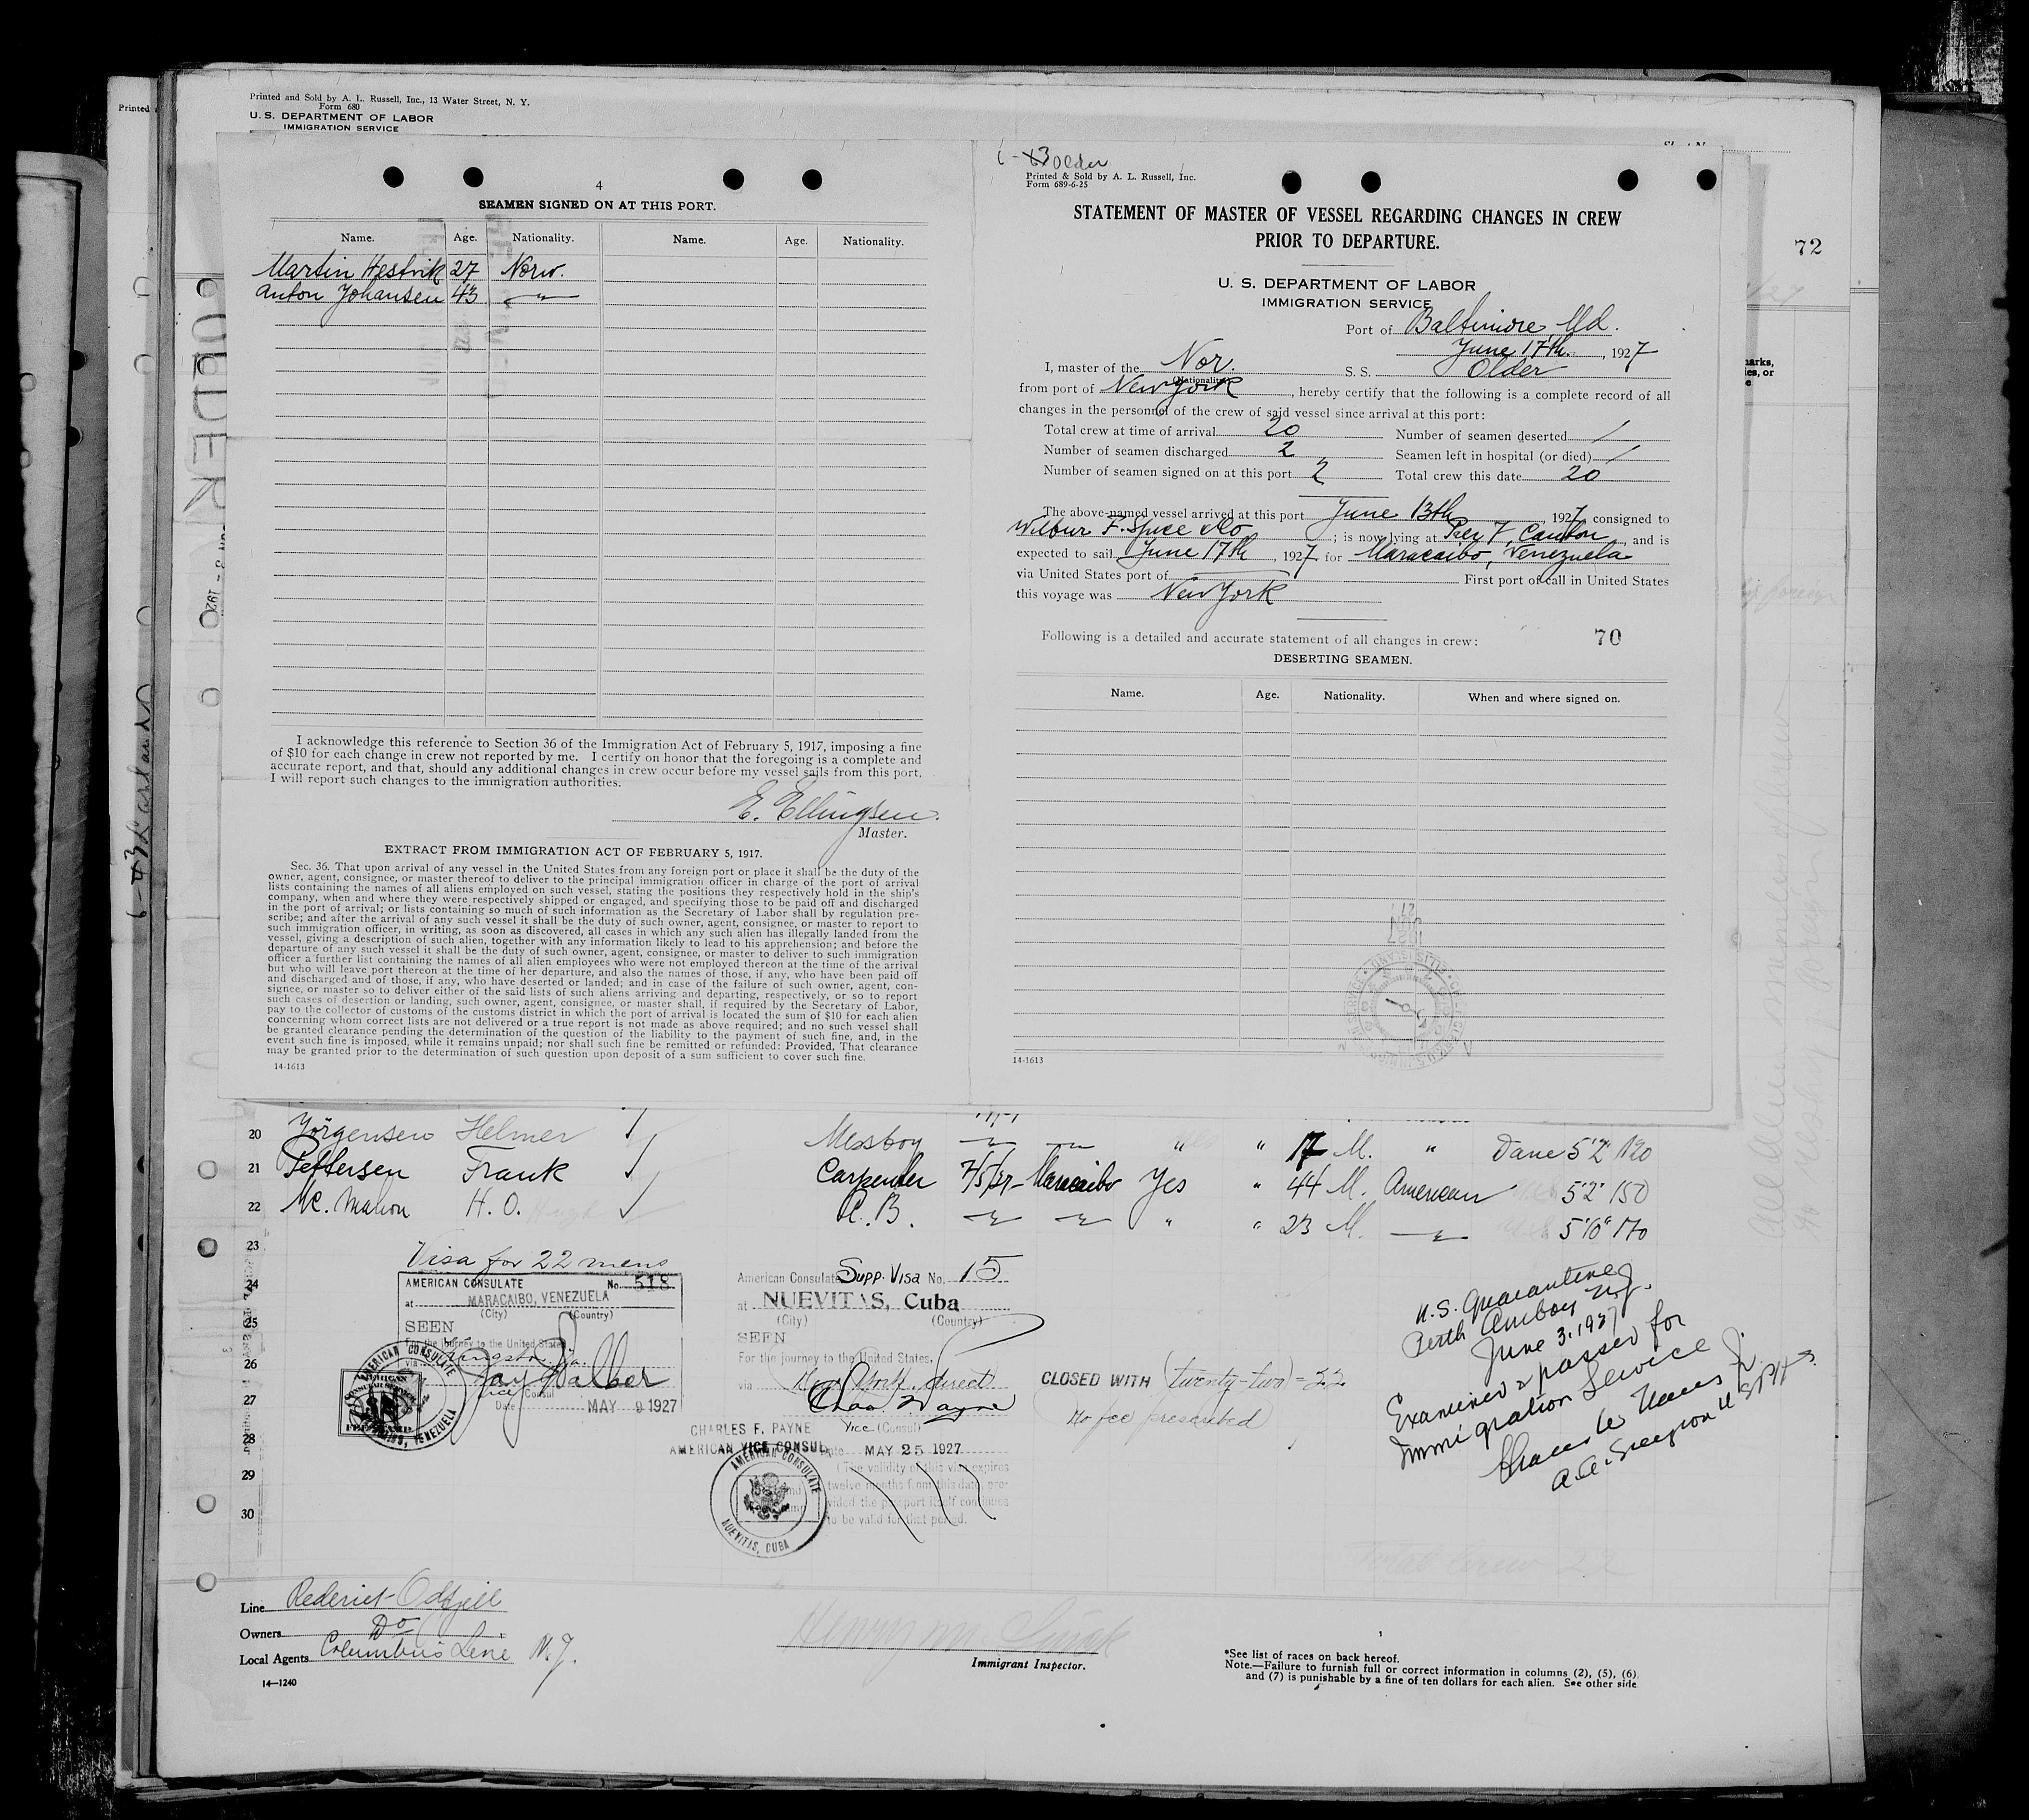 Printed and Sold by A. L. Russell, Inc., 13 Water Street, N. Y.
Form 680
U. S. DEPARTMENT OF LABOR
IMMIGRATION SERVICE
Printed
4
SEAMEN SIGNED ON AT THIS PORT.
Name. Age. Nationality. Name. Age. Nationality.
Martin Hestvik 27 Norw.
Anton Johansen 43 "
I acknowledge this reference to Section 36 of the Immigration Act of February 5, 1917, imposing a fine
of $10 for each change in crew not reported by me. I certify on honor that the foregoing is a complete and
accurate report, and that, should any additional changes in crew occur before my vessel sails from this port,
I will report such changes to the immigration authorities.
E. Ellingsen.
Master.
EXTRACT FROM IMMIGRATION ACT OF FEBRUARY 5, 1917.
Sec. 36. That upon arrival of any vessel in the United States from any foreign port or place it shall be the duty of the
owner, agent, consignee, or master thereof to deliver to the principal immigration officer in charge of the port of arrival
lists containing the names of all aliens employed on such vessel, stating the positions they respectively hold in the ship's
company, when and where they were respectively shipped or engaged, and specifying those to be paid off and discharged
in the port of arrival; or lists containing so much of such information as the Secretary of Labor shall by regulation pre-
scribe; and after the arrival of any such vessel it shall be the duty of such owner, agent, consignee, or master to report to
such immigration officer, in writing, as soon as discovered, all cases in which any such alien has illegally landed from the
vessel, giving a description of such alien, together with any information likely to lead to his apprehension; and before the
departure of any such vessel it shall be the duty of such owner, agent, consignee, or master to deliver to such immigration
officer a further list containing the names of all alien employees who were not employed thereon at the time of the arrival
but who will leave port thereon at the time of her departure, and also the names of those, if any, who have been paid off
and discharged and of those, if any, who have deserted or landed; and in case of the failure of such owner, agent, con-
signee, or master so to deliver either of the said lists of such aliens arriving and departing, respectively, or so to report
such cases of desertion or landing, such owner, agent, consignee, or master shall, if required by the Secretary of Labor,
pay to the collector of customs of the customs district in which the port of arrival is located the sum of $10 for each alien
concerning whom correct lists are not delivered or a true report is not made as above required; and no such vessel shall
be granted clearance pending the determination of the question of the liability to the payment of such fine, and, in the
event such fine is imposed, while it remains unpaid; nor shall such fine be remitted or refunded: Provided, That clearance
may be granted prior to the determination of such question upon deposit of a sum sufficient to cover such fine.
14-1613
Older
Printed & Sold by A. L. Russell, Inc.
Form 689-6-25
STATEMENT OF MASTER OF VESSEL REGARDING CHANGES IN CREW
PRIOR TO DEPARTURE.
U. S. DEPARTMENT OF LABOR
IMMIGRATION SERVICE
Port of Baltimore, Md.
June 17th., 1927
I, master of the Nor. S. S. Older
(Nationality)
from port of New York, hereby certify that the following is a complete record of all
changes in the personnel of the crew of said vessel since arrival at this port:
Total crew at time of arrival 20 Number of seamen deserted /
Number of seamen discharged 2 Seamen left in hospital (or died) /
Number of seamen signed on at this port 2 Total crew this date 20
The above-named vessel arrived at this port June 13th, 1927, consigned to
Wilbur F. Spice & Co; is now lying at Pier 7, Canton, and is
expected to sail June 17th, 1927 for Maracaibo, Venezuela
via United States port of First port of call in United States
this voyage was New York
Following is a detailed and accurate statement of all changes in crew: 70
DESERTING SEAMEN.
Name. Age. Nationality. When and where signed on.
14-1613
72
OLDER
20 Jörgensen Helmer Messboy " " 17 M. " Dane 5'2" 120
21 Pettersen Frank Carpenter 7/5/27 Maracaibo Yes " 44 M. American 5'2" 150
22 Mc. Mahon H. O. A. B. " " " " 23 M. " 5'10" 170
23
24
25
26
27
28
29
30
Visa for 22 mens
AMERICAN CONSULATE No. 518
at MARACAIBO, VENEZUELA
(City) (Country)
SEEN
For the journey to the United States
via Kingston Ja.
Vice Consul
Date MAY 9 1927
AMERICAN CONSULATE
MARACAIBO, VENEZUELA
American Consulate Supp. Visa No. 15
at NUEVITAS, Cuba
(City) (Country)
SEEN
For the journey to the United States,
via New York direct
Chas F Payne
Vice (Consul)
CHARLES F. PAYNE
AMERICAN VICE CONSUL
Date MAY 25 1927
(The validity of this visa expires
twelve months from this date, pro-
vided the passport itself continues
to be valid for that period.
AMERICAN CONSULATE
NUEVITAS, CUBA
CLOSED WITH (twenty-two) = 22
No fee prescribed
U.S. Quarantine
Perth Amboy N.J.
June 3. 1927
Examined & passed for
Immigration Service
A.A. Surgeon U S P H S
Total crew 22
Line Rederiet Odfjell
Owners Do
Local Agents Columbus Line N.Y.
14—1240
Immigrant Inspector.
*See list of races on back hereof.
Note.—Failure to furnish full or correct information in columns (2), (5), (6)
and (7) is punishable by a fine of ten dollars for each alien. See other side